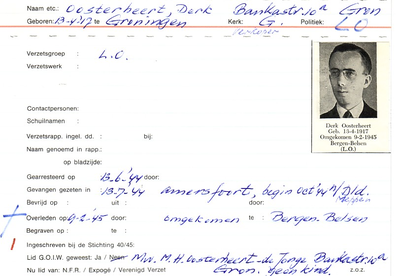 Naam etc.: Oosterheert, Derk Bankastr 10a Gron
Geboren: 13-4-'17 te Groningen Kerk: G. Politiek: LO
Verzetsgroep : L.O.
Verzetswerk :
Contactpersonen:
Schuilnamen :
Verzetsrapp. ingel. dd. : bij:
Naam genoemd in rapp.:
op bladzijde:
Derk Oosterheert
Geb. 13-4-1917
Omgekomen 9-2-1945
Bergen-Belsen
(L.O.)
Gearresteerd op : 13-6-'44 door:
Gevangen gezeten in: 13-7-'44 Amersfoort, begin Oct '44 n/Dld.
Bevrijd op : uit: door:
Overleden op : 9-2-'45 door: omgekomen te: Bergen Belsen
Begraven op : te:
Ingeschreven bij de Stichting 40/45:
Lid G.O.I.W. geweest: Ja / Neen Mw. M.H. Oosterheert - de Jonge Bankastr 10a
Nu lid van: N.F.R. / Expogé / Verenigd Verzet Gron. geen kind. z.o.z.